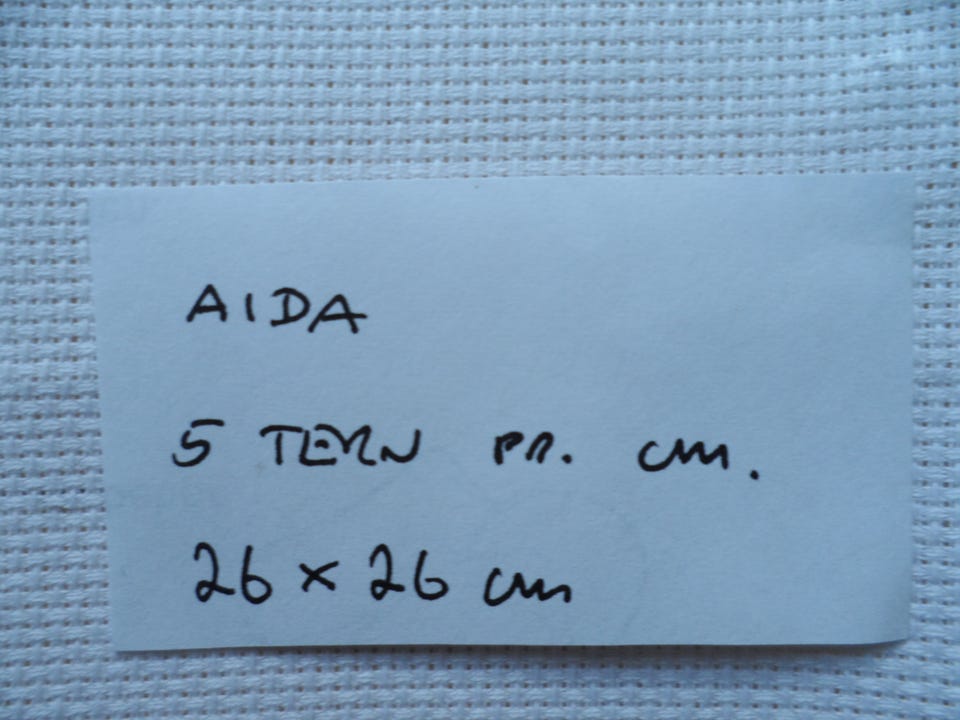 AIDA
5 TERN PR. cm.
26 x 26 cm